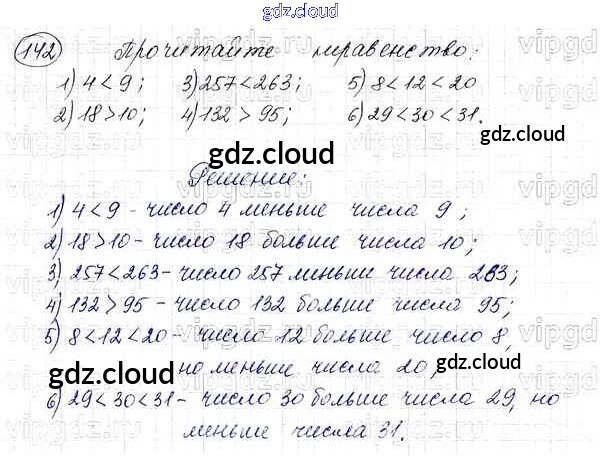 gdz.cloud
142 Прочитайте неравенство:
1) 4 < 9; 3) 257 < 263; 5) 8 < 12 < 20
2) 18 > 10; 4) 132 > 95; 6) 29 < 30 < 31.
Решение:
1) 4 < 9 - число 4 меньше числа 9;
2) 18 > 10 - число 18 больше числа 10;
3) 257 < 263 - число 257 меньше числа 263;
4) 132 > 95 - число 132 больше числа 95;
5) 8 < 12 < 20 - число 12 больше числа 8,
но меньше числа 20;
6) 29 < 30 < 31 - число 30 больше числа 29, но
меньше числа 31.
gdz.cloud
gdz.cloud
gdz.cloud
gdz.cloud
gdz.cloud